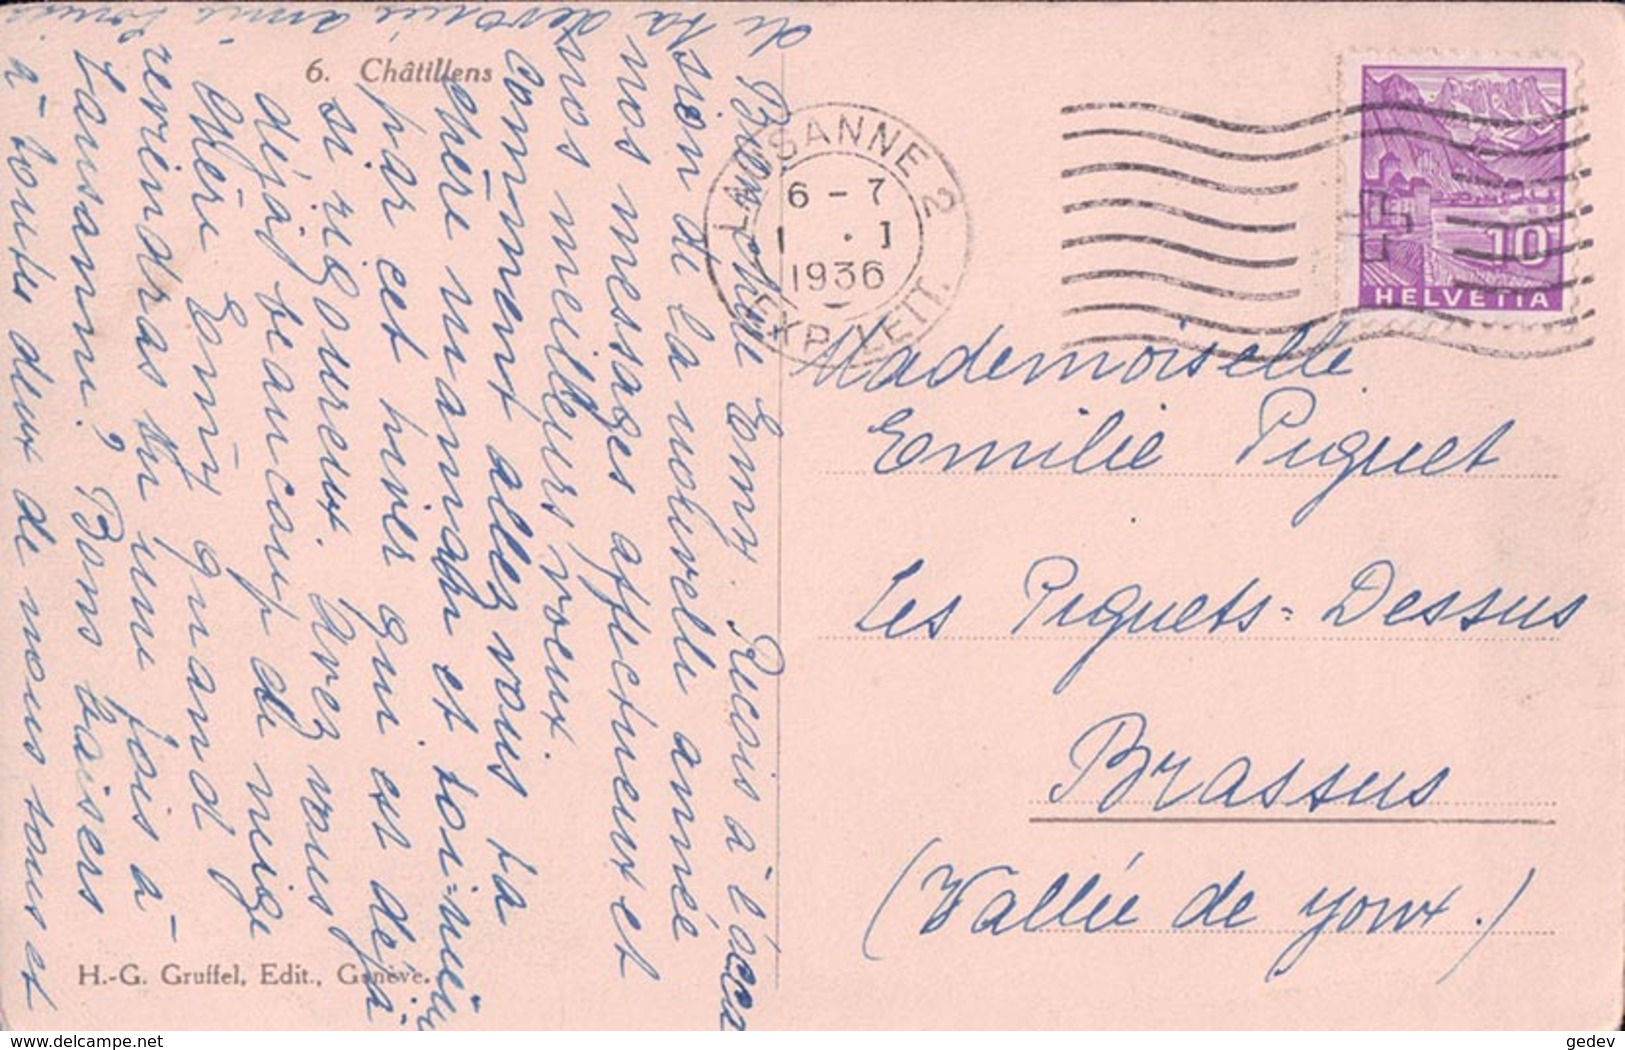 6. Châtillens
LAUSANNE 2
6-7
1 . I
1936
EXP. LETT.
10
HELVETIA
Mademoiselle
Emilie Piguet
Les Piguets=Dessus
Brassus
(Vallée de Joux.)
Bien chère Emy. Reçois à l'occa
sion de la nouvelle année
nos messages affectueux et
nos meilleurs voeux.
Comment allez vous ta
chère maman et toi=même
par cet hiver qui est déjà
si rigoureux. Avez vous
déjà beaucoup de neige
Chère Emy quand
reviendras tu une fois à
Lausanne? Bons baisers
à toutes deux de nous tous et
de ta dévouée amie
H.-G. Gruffel, Edit., Genève.
gedev
www.delcampe.net